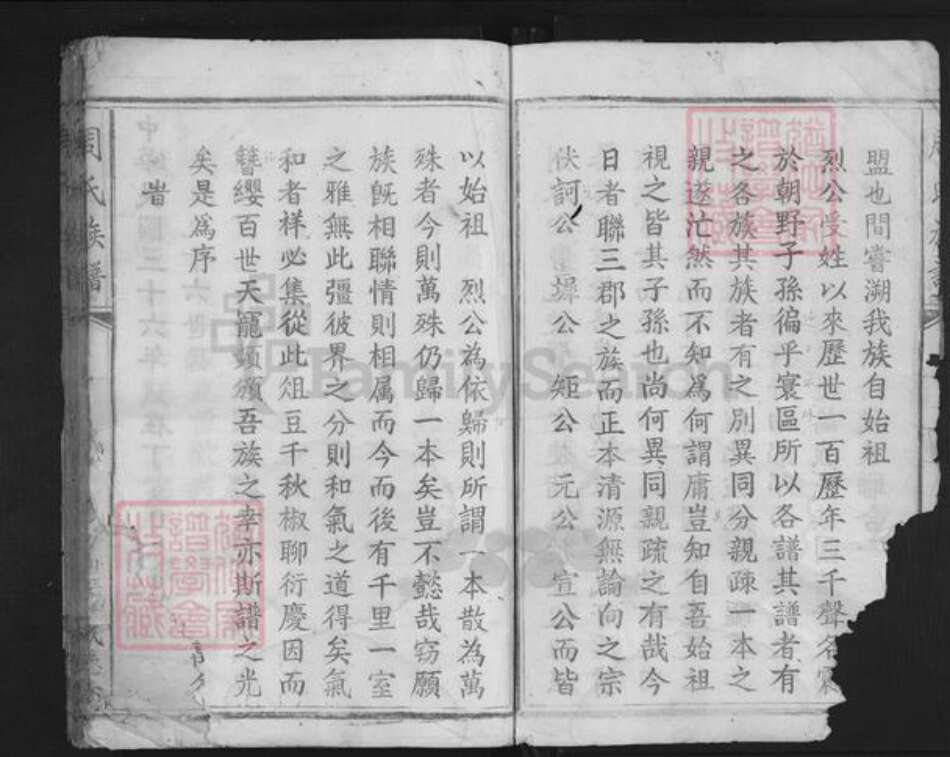 盟也間嘗溯我族自始祖
烈公受姓以來歷世一百歷年三千聲名
於朝野子孫徧乎寰區所以各譜其譜者有
之各族其族者有之別異同分親疎一本之
親遂茫然而不知為何謂庸豈知自吾始祖
視之皆其子孫也尚何異同親疏之有哉今
日者聯三郡之族而正本清源無論向之宗
訶公 墀公 矩公 元公 宣公而皆
以始祖 烈公為依歸則所謂一本散為萬
殊者今則萬殊仍歸一本矣豈不懿哉窃願
族旣相聯情則相属而今而後有千里一室
之雅無此彊彼界之分則和氣之道得矣氣
和者祥必集從此俎豆千秋椒聊衍慶因而
簪纓百世天寵頻頒吾族之幸亦斯譜之光
矣是為序
旹
周氏族譜
FamilySearch